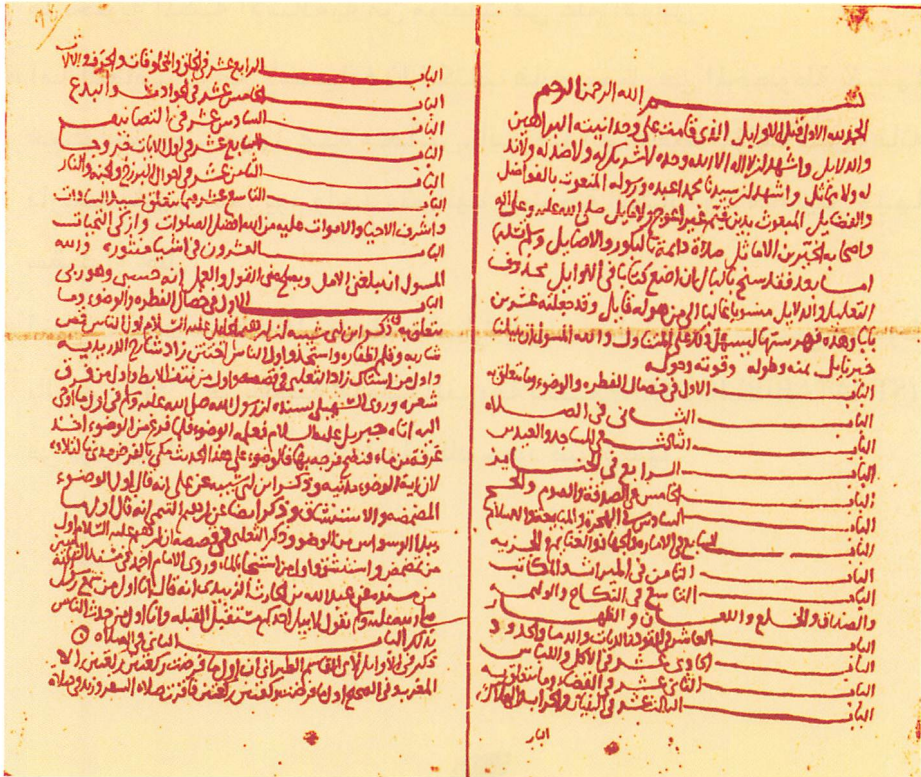 بسم الله الرحمن الرحيم
الحمد لله الاول قبل الاوايل الذي قامت على وحدانيته البراهين
والدلايل واشهد ان لا اله الا الله وحده لا شريك له ولا ضد له ولا ند
له ولا مماثل واشهد ان سيدنا محمدا عبده ورسوله المنعوت بالفواضل
والفضايل المبعوث بدين قيم غير اعوج ولا مايل صلى الله عليه وعلى اله
واصحابه الخيرين الاماثل صلاة دايمة بالبكور والاصايل وسلم تسليما
اما بعد فقد سنح بالبال ان اضع كتابا في الاوايل محذوف
التعاليل والدلايل منسوبا غالبا الى من هو له قايل وقد جعلته عشرين
بابا وهذه فهرستها ليسهل ذلك على المتناول والله المسؤل ان ينيلنا
خير نايل بمنه وطوله وقوته وحوله
الباب الاول في خصال الفطره والوضوء وما يتعلق به
الباب الثاني في الصلاه
الباب الثالث في المساجد والعيدين
الباب الرابع في الجنايز
الباب الخامس في الصدقة والصوم والحج
الباب السادس في الهجره والمبايعة والاسلام
الباب السابع في الاماره والجهاد والغنايم والجزيه
الباب الثامن في الميراث والمكاتب
الباب التاسع في النكاح والوليمه
والصداق والخلع واللعان والظهار
الباب العاشر في القود والديات والدما والحدود
الباب الحادي عشر في الاكل واللباس
الباب الثاني عشر في القضاء وما يتعلق به
الباب الثالث عشر في البنيان والخراب والهلاك
الباب
الباب الرابع عشر في الخلق والمخلوقات والحرف والالات
الباب الخامس عشر في الحوادث والبدع
الباب السادس عشر في التصانيف
الباب السابع عشر في اول الايات خروجا
الباب الثامن عشر في احوال البرزخ والجنه والنار
الباب التاسع عشر فيما يتعلق بسيد السادات
واشرف الاحيا والاموات عليه من الله افضل الصلوات وازكى التحيات
الباب العشرون في اشيا منثوره والله
المسول ان يبلغني الامل ويصلح مني القول والعمل انه حسبي وهو ربي
الباب الاول في خصال الفطره والوضوء وما
يتعلق به ذكر ابن ابي شيبه ان ابراهيم الخليل عليه السلام اول الناس قص
شاربه وقلم اظفاره واستحد واول الناس اختتن زاد شارح الدريديه
واول من استاك زاد الثعلبي في قصصه واول من نتف الابط واول من فرق
شعره وروى السهيلي بسنده ان رسول الله صلى الله عليه وسلم في اول ما اوحي
اليه اتاه جبريل عليه السلام فعلمه الوضوء فلما فرغ من الوضوء اخذ
غرفة من ماء فنضح فرجه بها فالوضوء على هذا الحديث مكي بالفرض مدني بالتلاوه
لان اية الوضوء مدنيه وذكر ابن ابي شيبه عن علي انه قال اول الوضوء
المضمضه والاستنشاق وذكر ايضا عن ابراهيم التيمي انه قال اول ما
يبدا الوسواس من الوضوء وذكر الثعلبي في قصصه ان ابراهيم عليه السلام اول
من تمضمض واستنشق واول من استنجا بالماء وروى الامام احمد في مسند
من مسنده عن عبد الله بن الحارث الزبيدي انه قال انا اول من سمع رسول
الله صلى الله عليه وسلم يقول لا يبول احدكم مستقبل القبله وانا اول من حدث الناس
بذلك الباب الثاني في الصلاه
ذكر في الاوايل لابي القاسم الطبراني ان اول ما فرضت ركعتين ركعتين الا
المغرب وفي الصحيح اول ما فرضت ركعتين ركعتين فاقرت صلاة السفر وزيد في صلاة